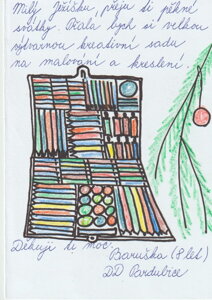 Milý Ježíšku, přeju ti pěkné
svátky. Přála bych si velkou
výtvarnou kreativní sadu
na malování a kreslení.
Děkuji ti moc
Baruška (8 let)
DD Pardubice